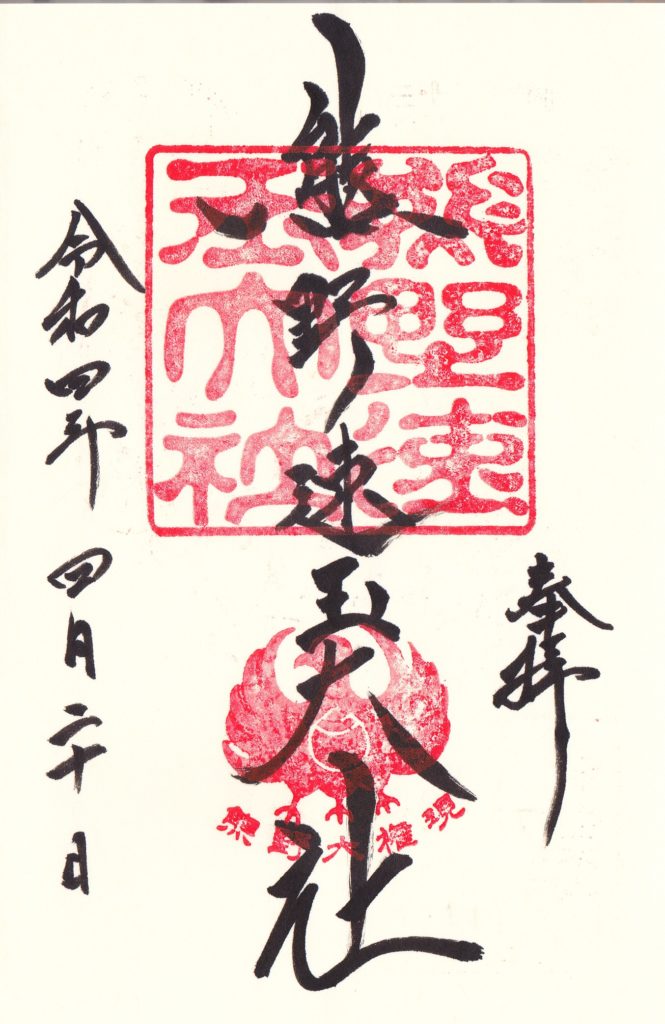 奉拝
熊野速玉大社
熊野速
玉大社
熊野大権現
令和四年 四月二十日